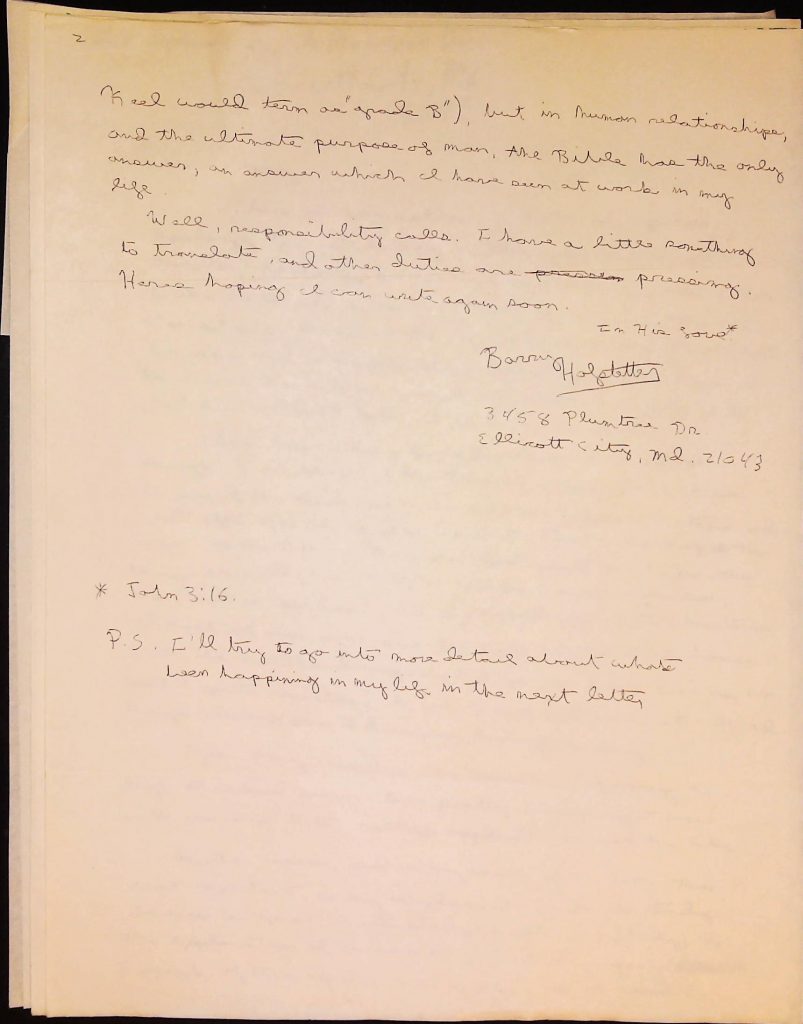 2
Keel would term as "grade B"), but in human relationships,
and the ultimate purpose of man, the Bible has the only
answer, an answer which I have seen at work in my
life.
Well, responsibility calls. I have a little something
to translate, and other duties are pressing.
Heres hoping I can write again soon.
In His love*
Barry Hofstetter
3458 Plumtree Dr.
Ellicott City, Md. 21043
* John 3:16.
P.S. I'll try to go into more detail about whats
been happining in my life in the next letter